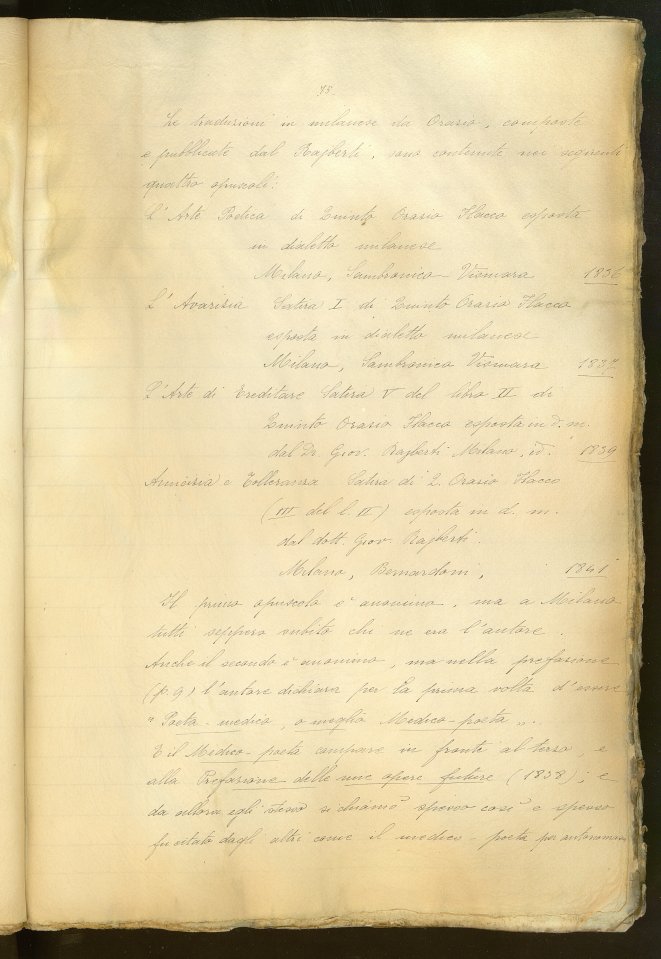 78.
Le traduzioni in milanese da Orazio, composte
e pubblicate dal Rajberti, sono contenute nei seguenti
quattro opuscoli:
L'Arte Poetica di Quinto Orazio Flacco esposta
in dialetto milanese
Milano, Sambronico Vismara 1836
L'Avarizia Satira I di Quinto Orazio Flacco
esposta in dialetto milanese
Milano, Sambronico Vismara 1837
L'Arte di Ereditare Satira V del libro II di
Quinto Orazio Flacco esposta in d. m.
dal Dr Giov. Rajberti Milano, id. 1839
Amicizia e Tolleranza Satira di Q. Orazio Flacco
(III del l. II) esposta in d. m.
dal dott. Giov. Rajberti.
Milano, Bernardoni, 1841
Il primo opuscolo è anonimo, ma a Milano
tutti seppero subito chi ne era l'autore.
Anche il secondo è anonimo, ma nella prefazione
(p 9) l'autore dichiara per la prima volta d'essere
" Poeta-medico, o meglio Medico-poeta ".
E il Medico-poeta compare in fronte al terzo, e
alla Prefazione delle mie opere future (1838); e
da allora egli stesso si chiamò spesso così e spesso
fu citato dagli altri come il medico-poeta per